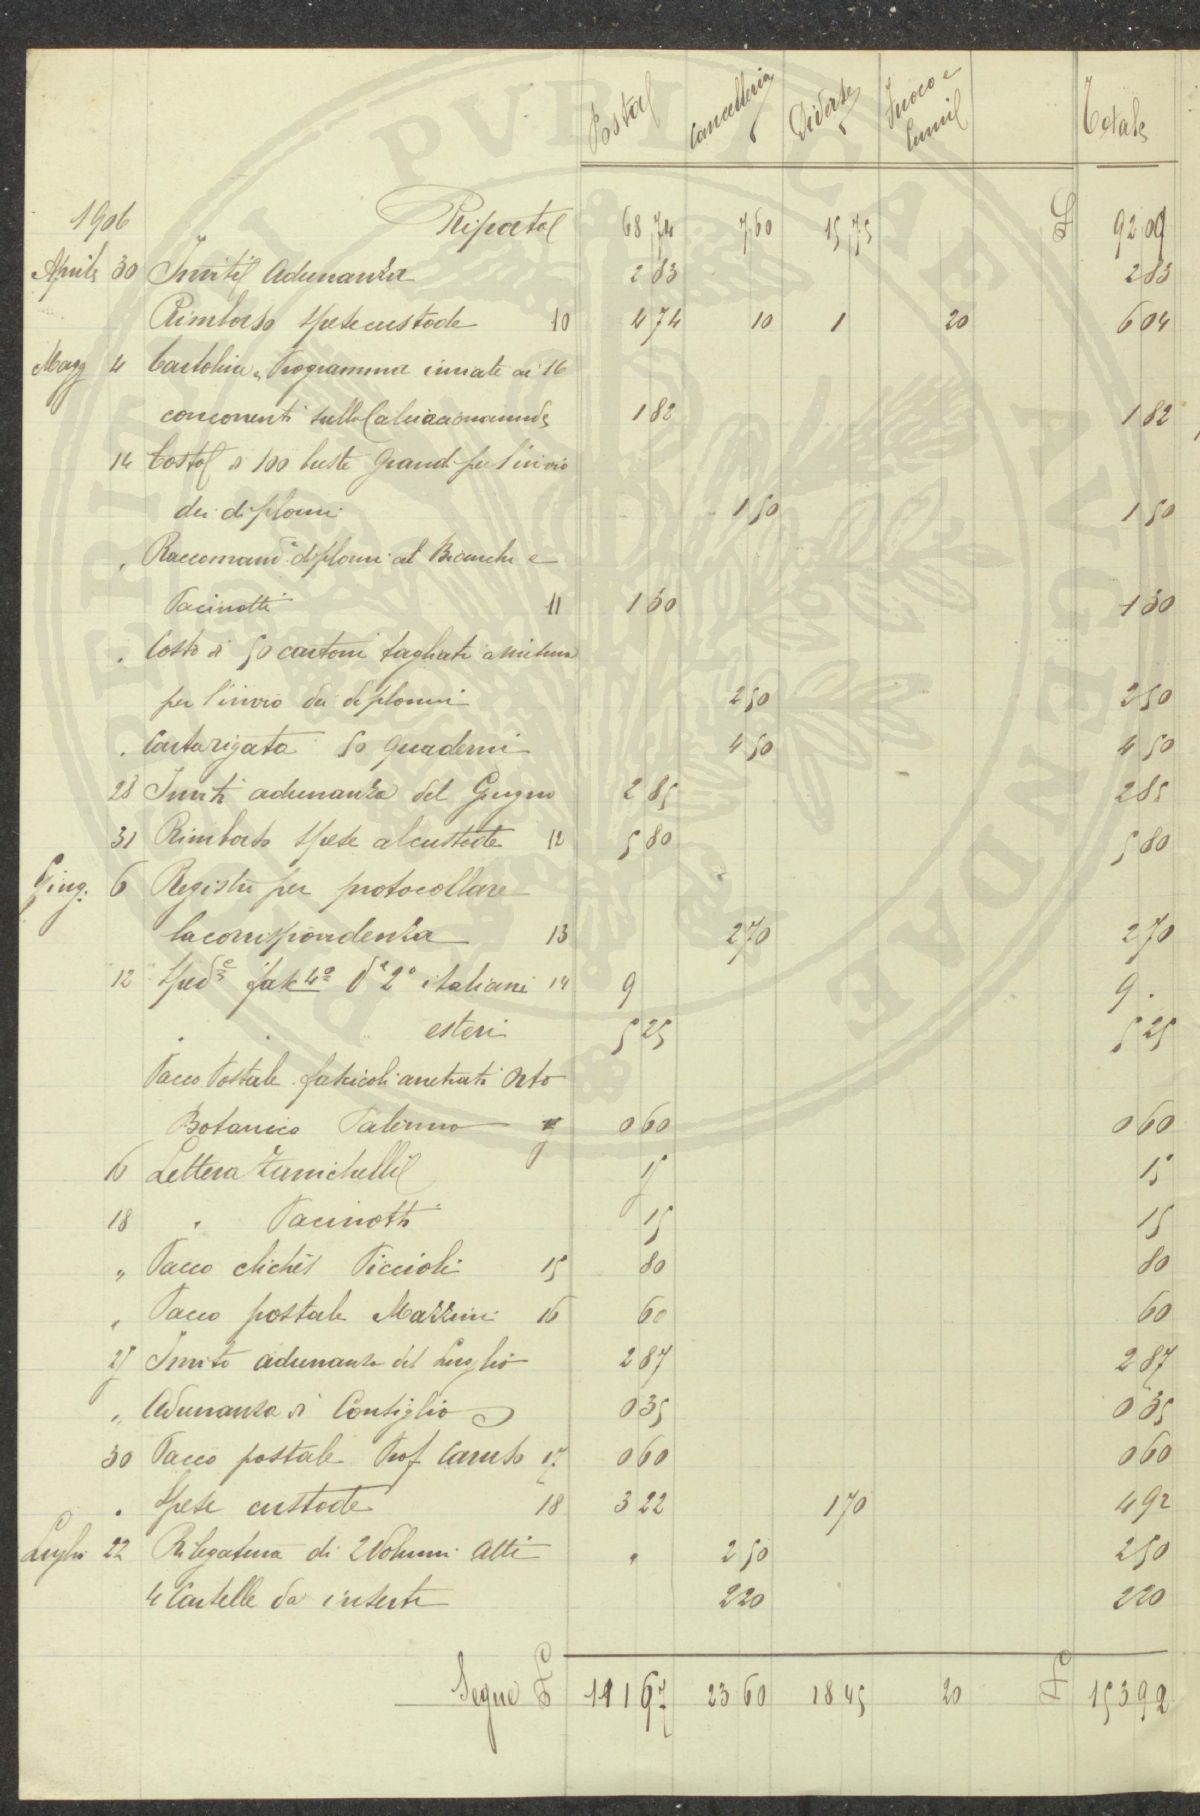 Postal Cancelleria Diverse Fuoco e Lumi Totale
1906 Riporto 68 74 7 60 15 75 £ 92 09
Aprile 30 Inviti Adunanza 2 83 2 83
Rimborso spese custode 10 4 74 10 1 20 6 04
Magg 4 Cartoline Programma inviate ai 16
concorrenti sulla 1 82 1 82
14 Costo di 100 buste grandi per l'invio
dei diplomi 1 50 1 50
" Raccomand diplomi al Bianchi e
Pacinotti 11 1 30 1 30
" Costo di 50 cartoni tagliati a misura
per l'invio dei diplomi 2 50 2 50
" Carta rigata 50 quaderni 4 50 4 50
28 Inviti adunanza del Giugno 2 85 2 85
31 Rimborso spese al custode 12 5 80 5 80
Giug. 6 Registri per protocollare
la corrispondenza 13 2 70 2 70
12 Sped fas 4º 2º italiani 14 9 9 .
" " esteri 5 25 5 25
Pacco Postale fascicoli arretrati Orto
Botanico Palermo 0 60 0 60
16 Lettera Zanichelli 15 15
18 " Pacinotti 15 15
" Pacco clichés Piccioli 15 80 80
" Pacco postale Mazzini 16 60 60
25 Invito adunanza del Luglio 2 87 2 87
" Adunanza di Consiglio 0 35 0 35
30 Pacco postale Prof Caruso 17 0 60 0 60
" Spese custode 18 3 22 1 70 4 92
Luglio 22 Rilegatura di 2 Volumi Atti " 2 50 2 50
4 Cartelle da inserti 2 20 2 20
Segue £ 111 67 23 60 18 45 20 £ 153 92